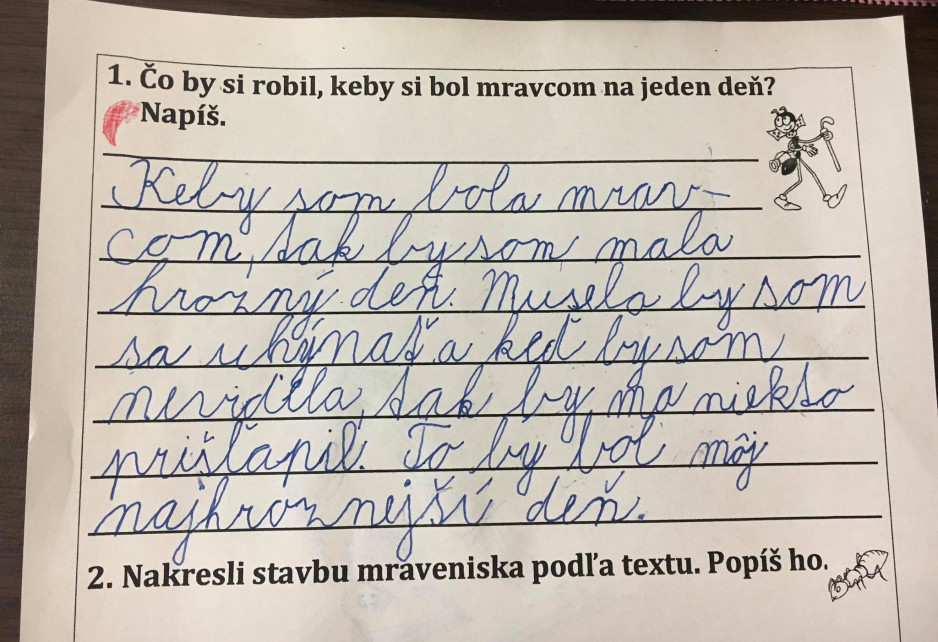 1. Čo by si robil, keby si bol mravcom na jeden deň?
Napíš.
Keby som bola mrav-
com, tak by som mala
hrozný deň. Musela by som
sa uhýnať a keď by som
nevidela, tak by ma niekto
prišľapil. To by bol môj
najhroznejší deň.
2. Nakresli stavbu mraveniska podľa textu. Popíš ho.